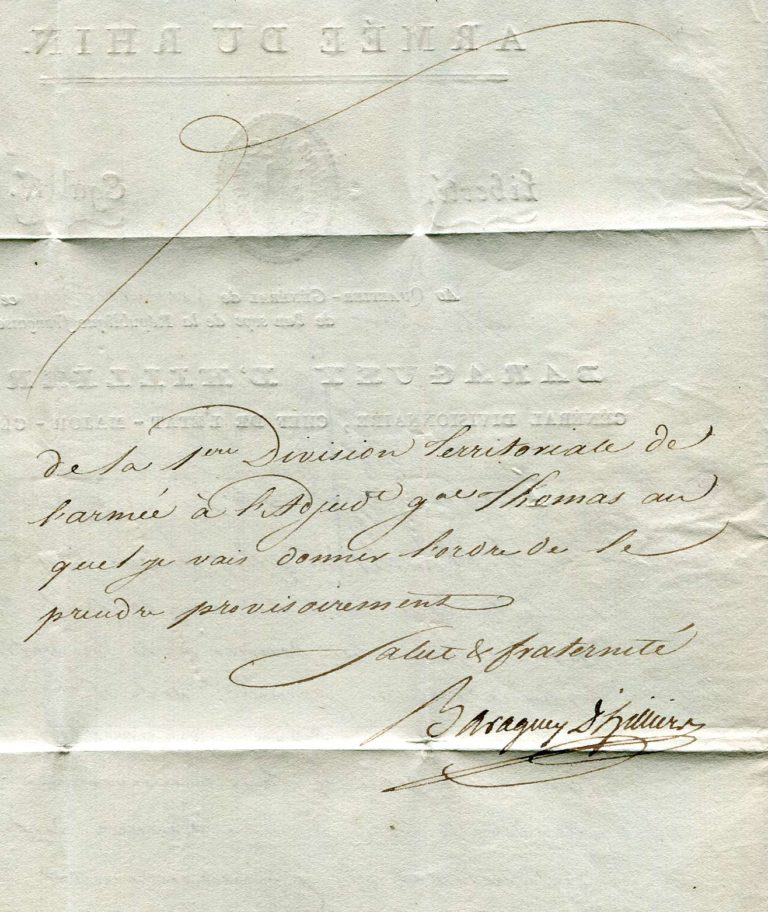 ARMÉE DU RHIN.
Liberté,
Au QUARTIER-GÉNÉRAL de
de l'an sept de la République française
BARAGUEY D'HILLIER
GÉNÉRAL DIVISIONNAIRE, CHEF DE L'ÉTAT-MAJOR-GÉ
de la 1ere Division territoriale de
l'armée à l'Adjudt gal Thomas au
quel je vais donner l'ordre de le
prendre provisoirement
Salut & fraternité
Baraguey d'hilliers